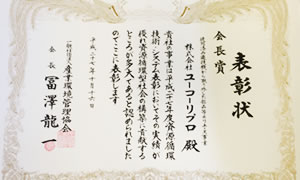 表彰状
会長賞
株式会社
ユーコーリプロ 殿
貴社の事業は平成二十七年度資源循環
技術・システム表彰においてその実績が
優れ資源循環型社会の構築に貢献する
ところが多大であると認められました
のでここに表彰します
平成二十七年十月十六日
一般社団法人産業環境管理協会
会長 冨澤龍一